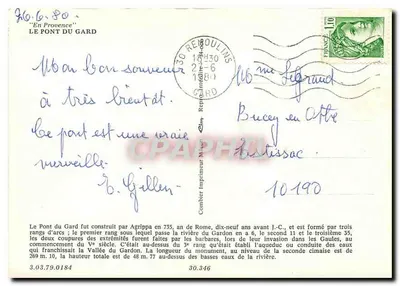 26.6.80.
"En Provence"
LE PONT DU GARD
30 REMOULINS
1980
GARD
FRANCE
1,10
Mon bon souvenir
à très bientôt.
Ce pont est une vraie
merveille.
Mme Legrand
Bucey en Othe
10190
CPARAMA
Combier Imprimeur
Le Pont du Gard fut construit par Agrippa en 735, an de Rome, dix-neuf ans avant J.-C., et est formé par trois
rangs d'arcs ; le premier rang sous lequel passe la rivière du Gardon en a 6, le second 11 et le troisième 35,
les deux coupures des extrémités furent faites par les barbares, lors de leur invasion dans les Gaules, au
commencement du Vᵉ siècle. C'était au-dessus du 3ᵉ rang qu'était établi l'aqueduc ou conduite des eaux
qui franchissait la Vallée du Gardon. La longueur du monument, au niveau de la seconde cimaise est de
269 m. 10, la hauteur totale est de 48 m. 77 au-dessus des basses eaux de la rivière.
3.03.79.0184
30.346